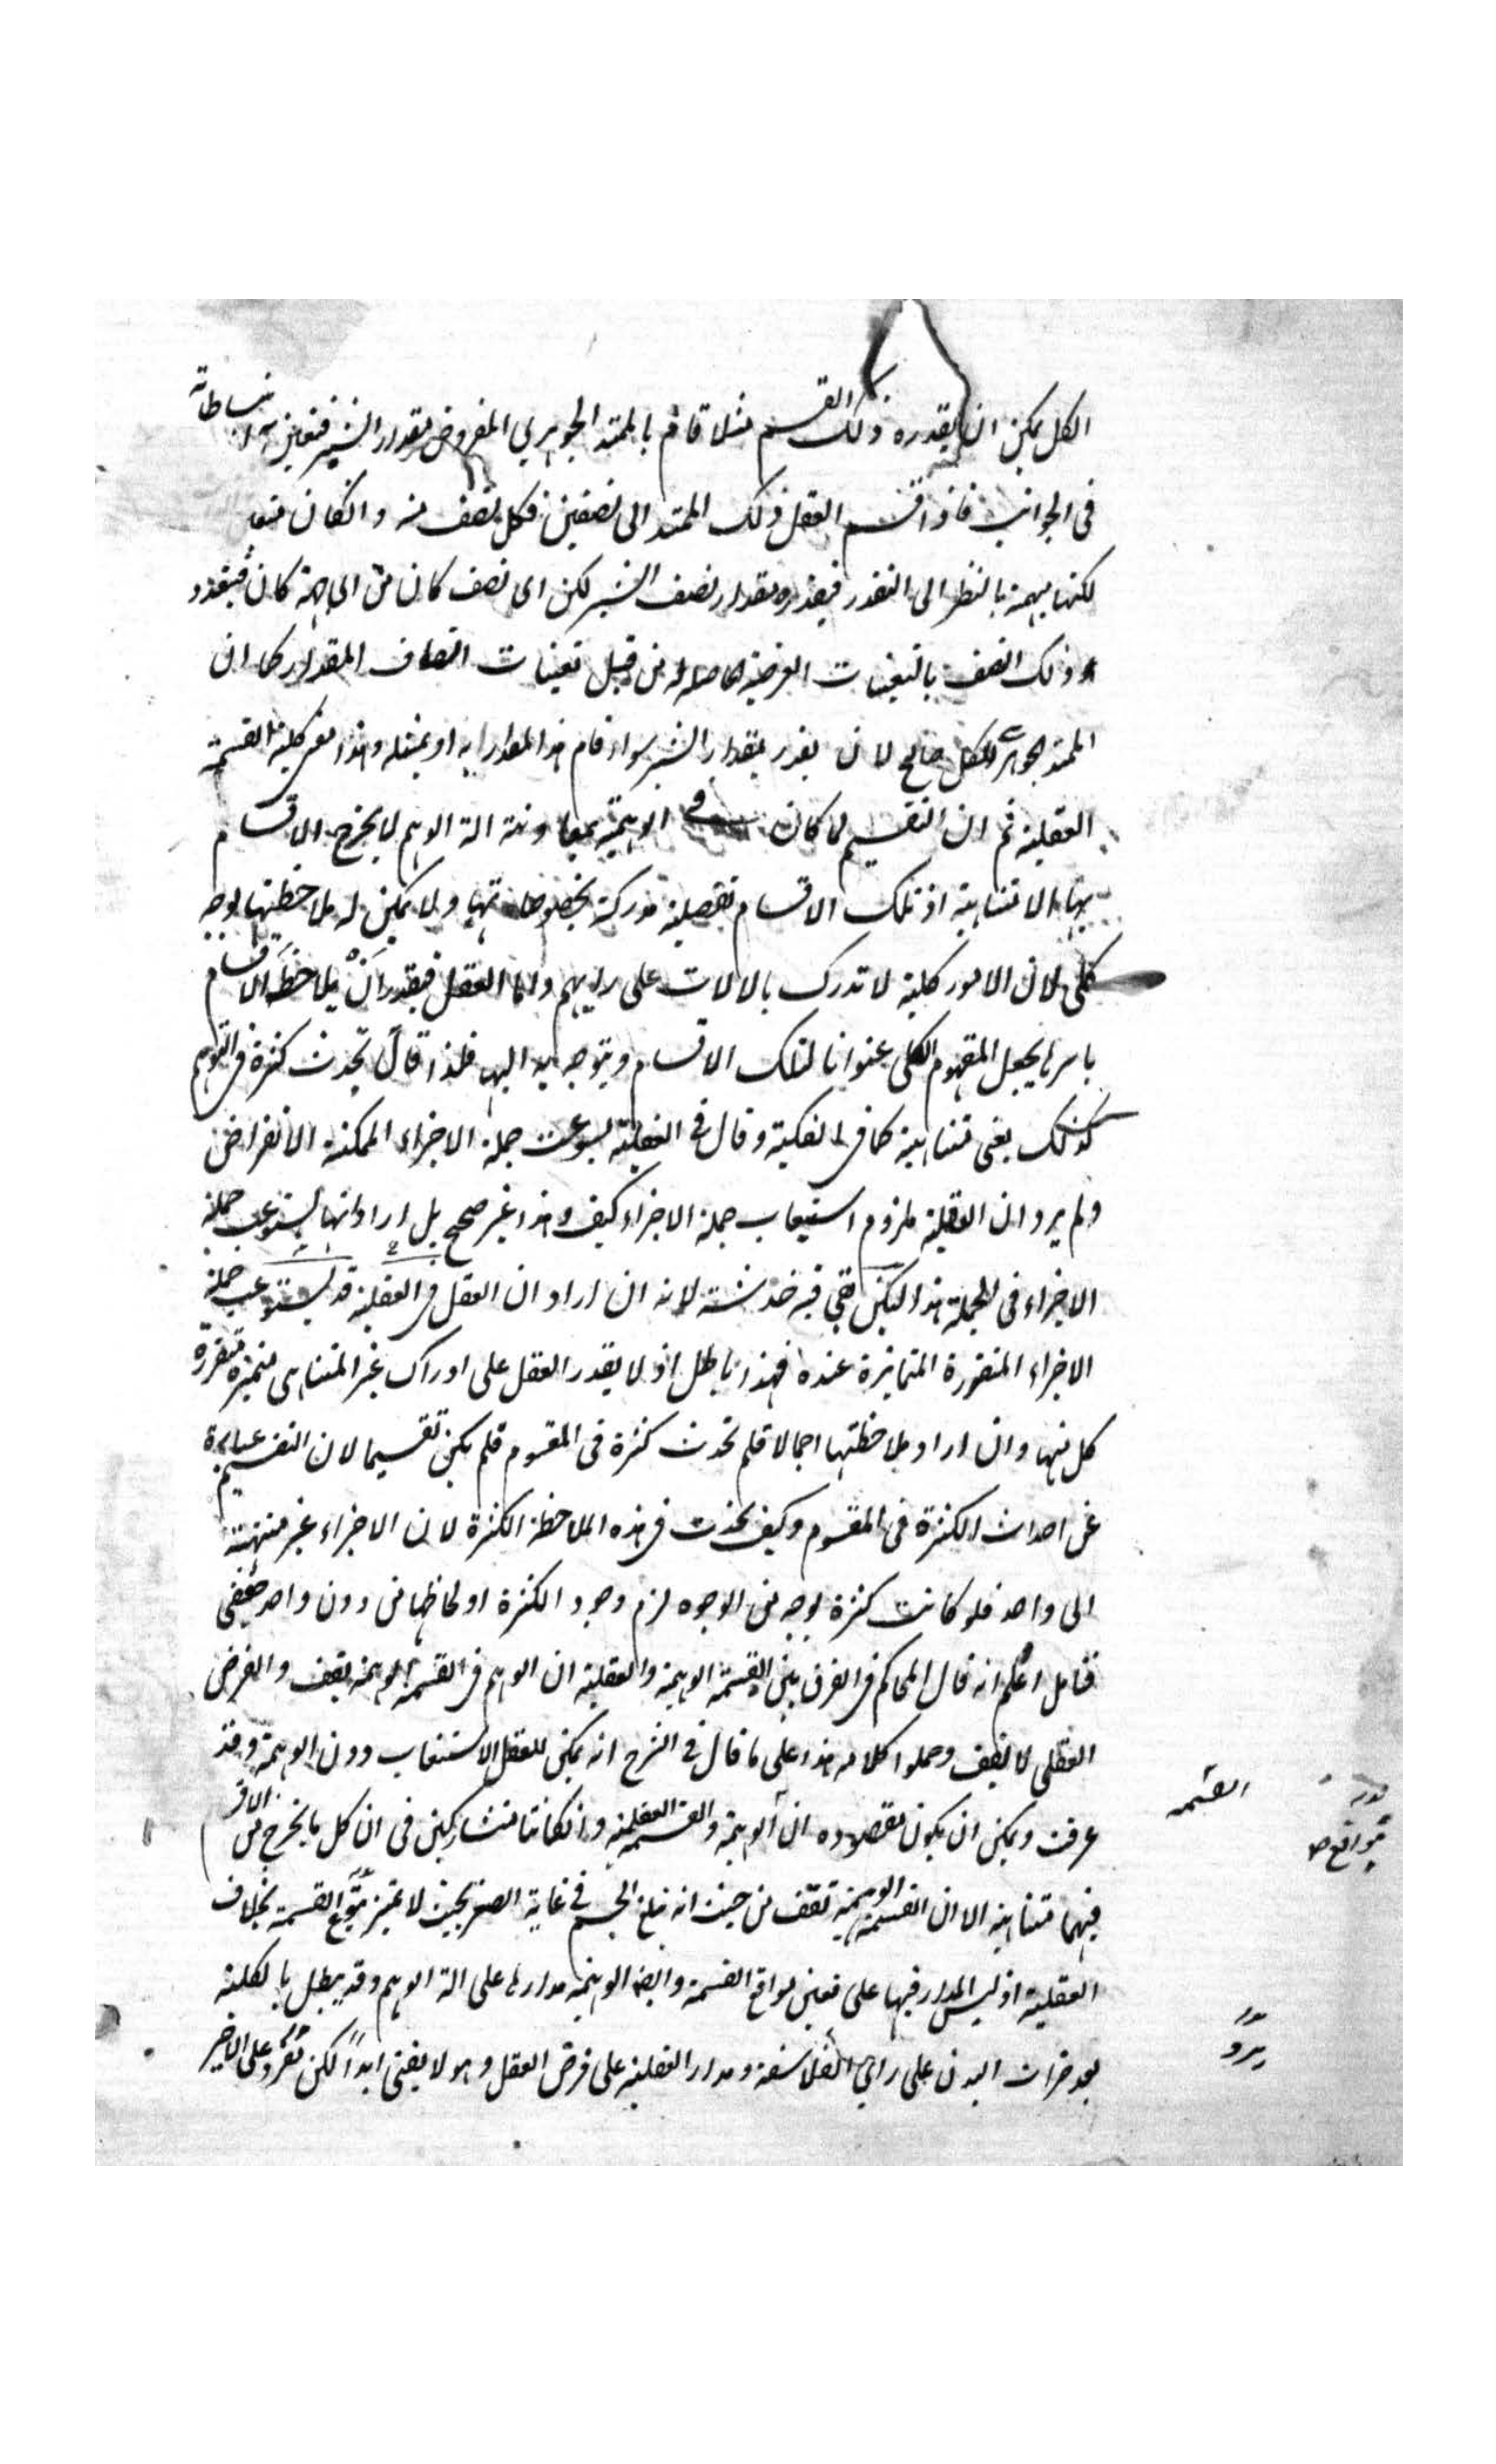 الكل يمكن ان يقدره ذلك القسم مثلا قام بالممتد الجوهري المفروض مقدار الشبر فتعين انبساطاته
فى الجوانب فاذا قسم العقل ذلك الممتد الى نصفين فكل نصف منه وانكان متعد
لكنها مبهمة بالنظر الى التقدر فيقدره مقدار نصف الشبر لكن اى نصف كان من اى جهة كان فيتقدر
ذلك النصف بالتعينات العرضية الحاصلة له من قبل تعينات انصاف المقدار كما ان
الممتد الجوهرى الكل صالح لان يقدر بمقدار الشبر سواء قام هذا المقدار به او بمثله وهذا معنى كلية القسمة
العقلية ثم ان التقسيم لما كان فى الوهمية بمعاونة الة الوهم لا يخرج الاقسام
بها الا متناهية اذ تلك الاقسام تفصيلية مدركة بخصوصاتها ولا يمكن له ملاحظتها بوجه
كلى لان الامور كلية لا تدرك بالالات على رايهم واما العقل فيقدر ان يلاحظ الاقسام
باسرها يجعل المفهوم الكلى عنوانا لتلك الاقسام ويتوجه به اليها فلذا قال تحدث كثرة فى التوهم
كذلك يعنى متناهية كما فى الفكية وقال فى العقلية يستوعب جملة الاجزاء الممكنة الانفراض
ولم يرد ان العقلية ملزوم استيعاب جملة الاجزاء كيف وهذا غير صحيح بل اراد انها يستوعب جملة
الاجزاء فى الجملة هذا لكن بقى فيه خدشة لانه ان اراد ان العقل فى العقلية قد يستوعب جملة
الاجزاء المتقررة المتمايزة عنده فهذا باطل اذ لا يقدر العقل على ادراك غير المتناهى متميزة متقررة
كل منها وان اراد ملاحظتها اجمالا فلم تحدث كثرة فى المقسوم فلم يكن تقسيما لان التقسيم عبارة
عن احداث الكثرة فى المقسوم وكيف تحدث فى هذه الملاحظة الكثرة لان الاجزاء غير منتهية
الى واحد فلو كانت كثرة بوجه من الوجوه لزم وجود الكثرة او لحاظها من دون واحد حقيقى
فتامل اعلم انه قال المحاكم فى الفرق بين القسمة الوهمية والعقلية ان الوهم فى القسمة الوهمية يقف والفرض
العقلى لا يقف وحملوا كلامه هذا على ما قال فى الشرح انه يمكن للعقل الاستيعاب دون الوهمية وقد
عرفت ويمكن ان يكون مقصوده ان الوهمية والقسمة العقلية وانكانتا متشاركتين فى ان كل ما يخرج من الاقسام
فيهما متناهية الا ان القسمة الوهمية تقف من حيث انه تبلغ الجسم فى غاية الصغر بحيث لا تميز مواقع القسمة بخلاف
العقلية اذ ليس المدار فيها على تعين مواقع القسمة وايضا الوهمية مدارها على الة الوهم وقد يبطل بالكلية
بعد خراب البدن على راى الفلاسفة ومدار العقلية على فرض العقل وهو لا يفنى ابدا لكن يرد على الاخير
القسمة
مواقع
يرد